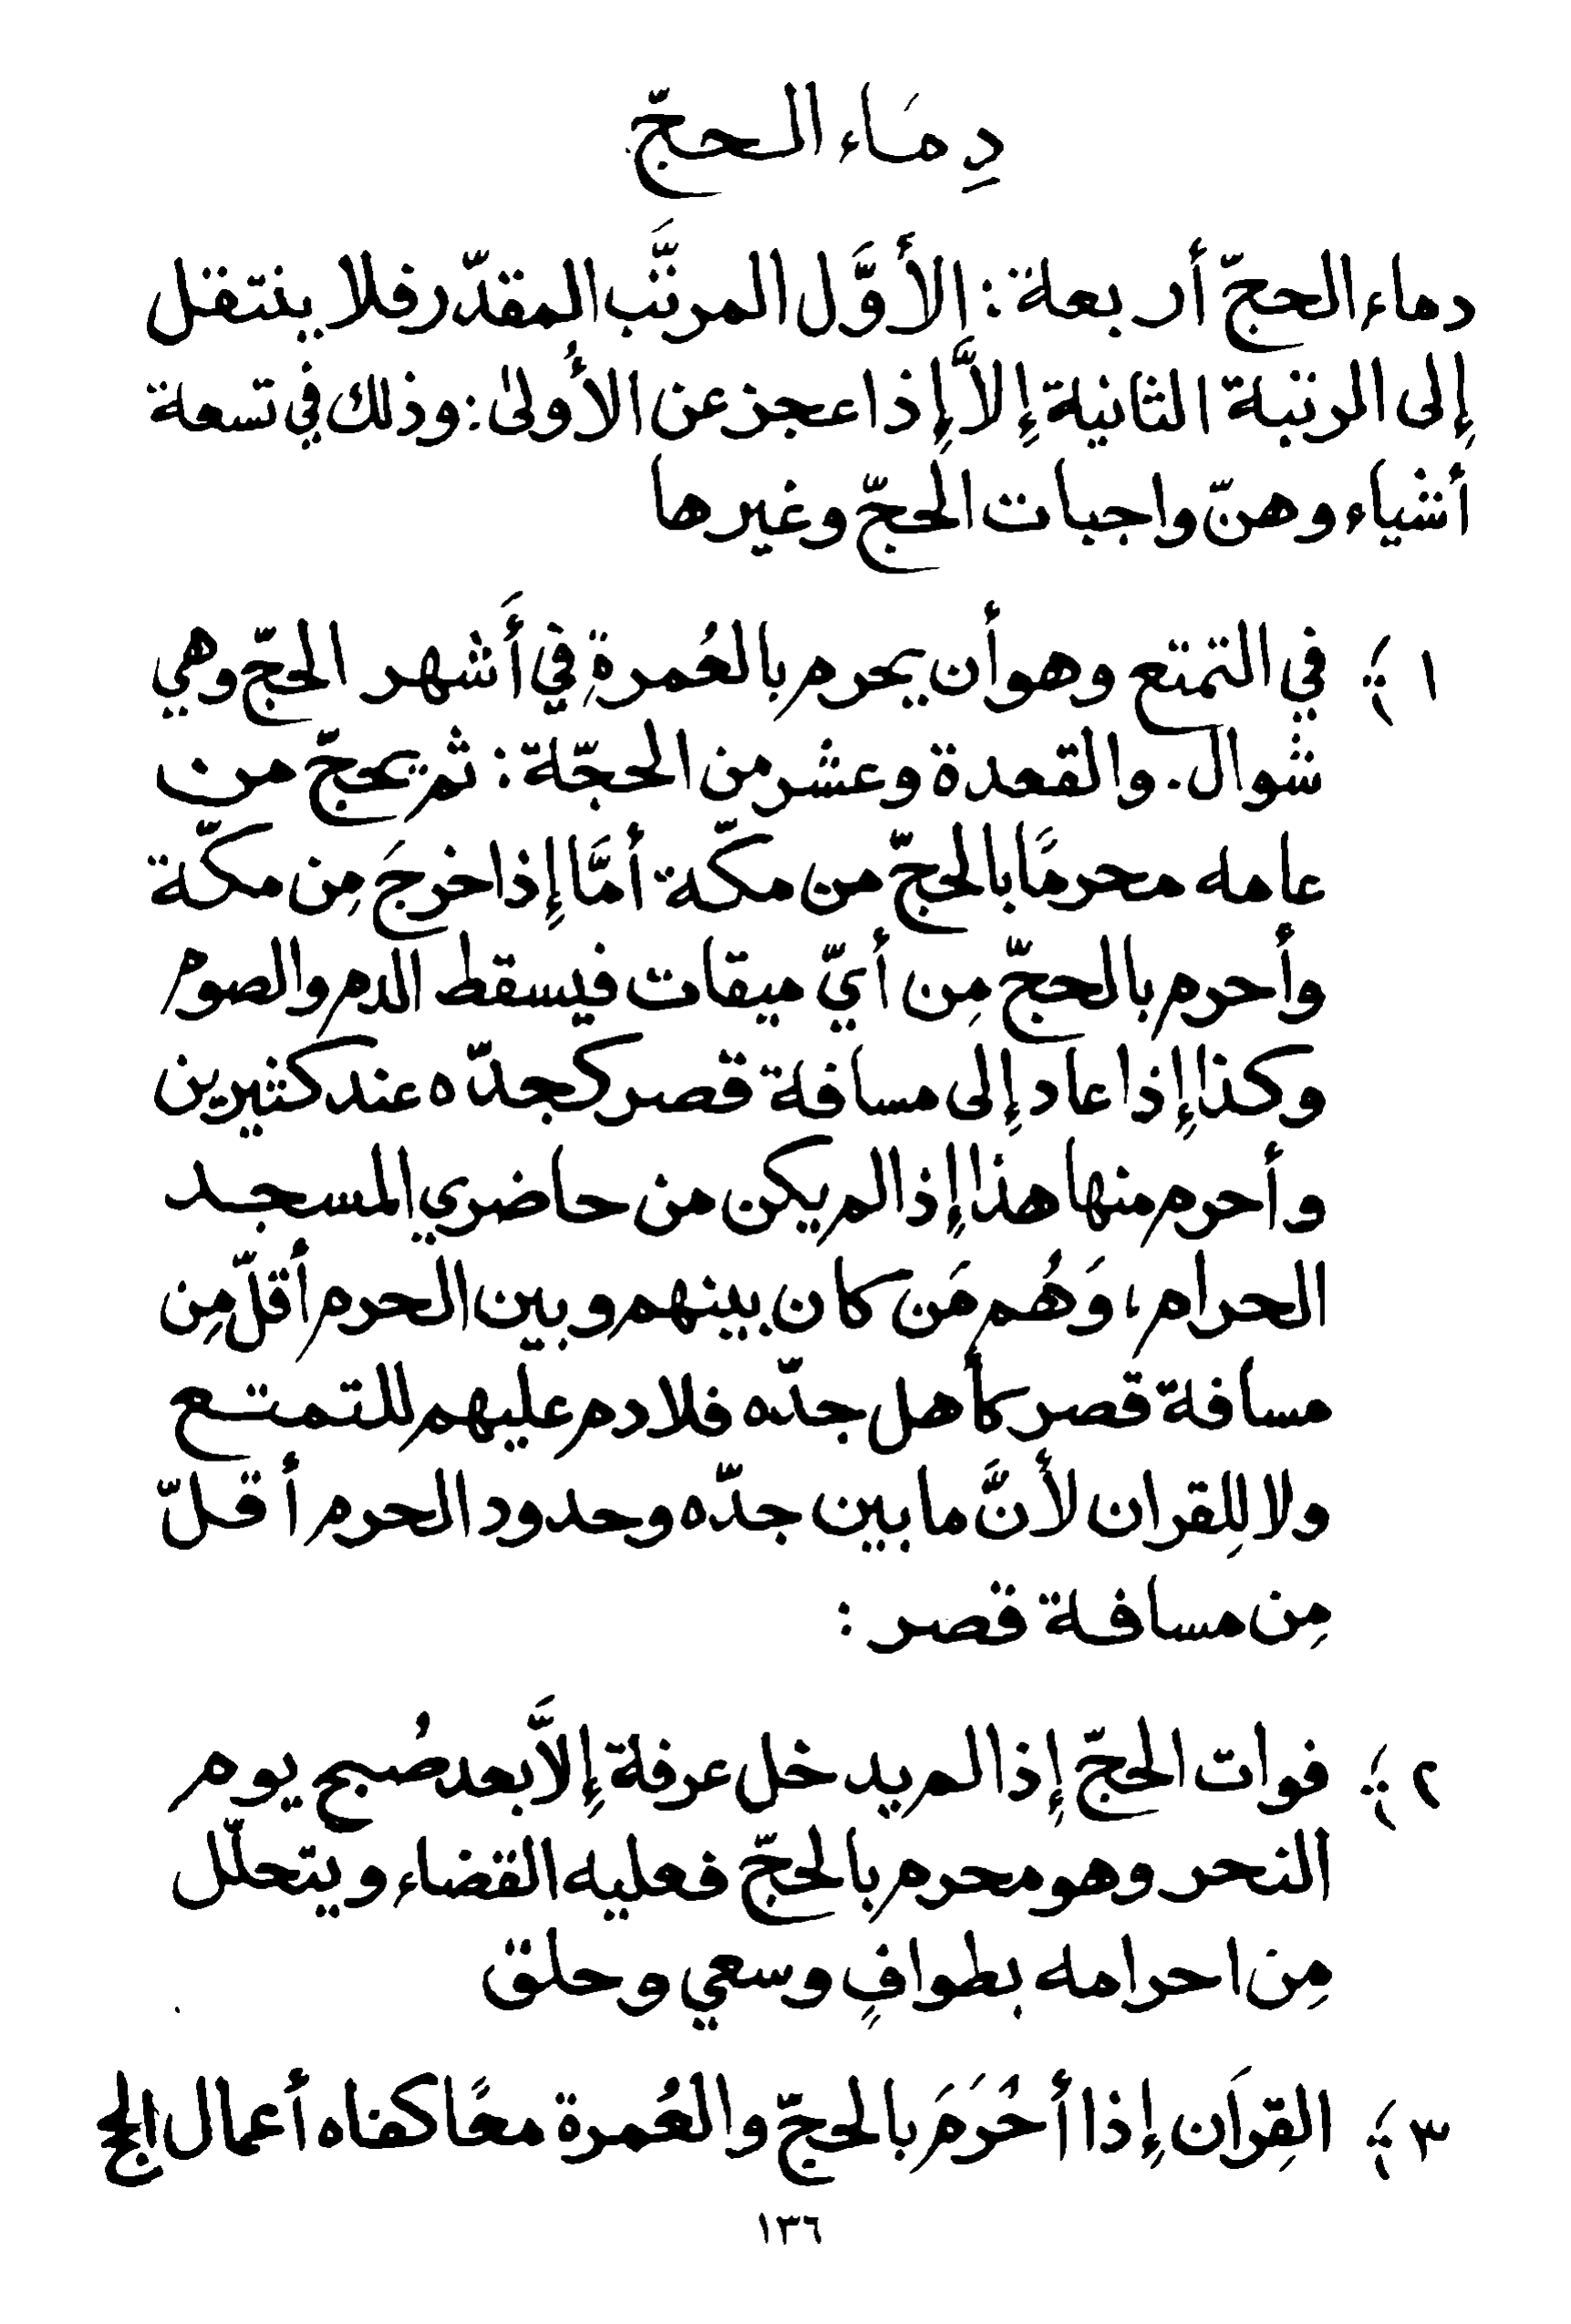 دِمَاء الحجّ
دماء الحجّ أربعة: الأوَّل المرتَّب المقدّر فلا ينتقل
إلى المرتبة الثانية إلاَّ إذا عجز عن الأُولى: وذلك في تسعة
أشياء وهنّ واجبات الحجّ وغيرها
١ ؛ في التمتع وهو أن يحرم بالعُمرةِ في أَشهر الحجّ وهي
شوال. والقعدة وعشر من الحجّة: ثم يحجّ من
عامه محرمًا بالحجّ من مكّة أمَّا إذا خرجَ مِن مكّة
وأحرم بالحجّ مِن أيّ ميقات فيسقط الدم والصوم
وكذا إذا عاد إلى مسافة قصر كجدّه عند كثيرين
وأحرم منها هذا إذا لم يكن من حاضري المسجد
الحرام، وَهُم مَن كان بينهم وبين الحرم أقلّ مِن
مسافة قصر كأهل جدّه فلا دم عليهم للتمتع
ولا للِقران لأنَّ ما بين جدّه وحدود الحرم أقلّ
مِن مسافة قصر:
٢ ؛ فوات الحجّ إذا لم يدخل عرفة إلاَّ بعد صُبح يوم
النحر وهو محرم بالحجّ فعليه القضاء ويتحلّل
مِن احرامه بطوافٍ وسعي وحلق
٣ ؛ القِرَان إذا أحُرَمَ بالحجّ والعُمرة معًا كفاه أعمال الحج
١٣٦